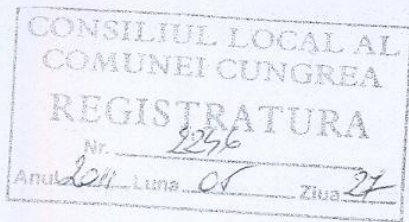 CONSILIUL LOCAL AL
COMUNEI CUNGREA
REGISTRATURA
Nr. 2246
Anul 2011 Luna 05 Ziua 27